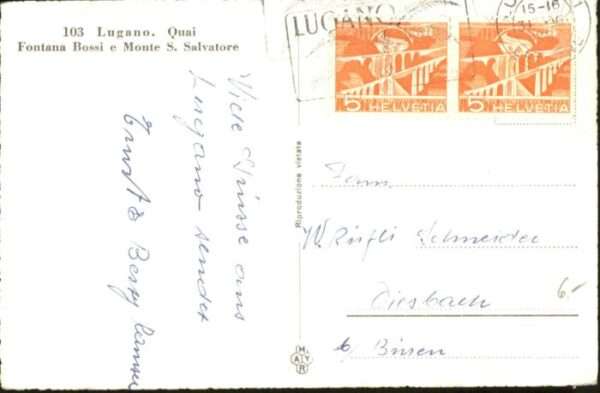 103 Lugano. Quai
Fontana Bossi e Monte S. Salvatore
LUGANO
15-16
5 HELVETIA
5 HELVETIA
Viele Grüsse aus
Lugano sendet
Ernst & Betty
Riproduzione vietata
Fam.
Schneider
Diesbach
b/ Büren
6.-
MAYR